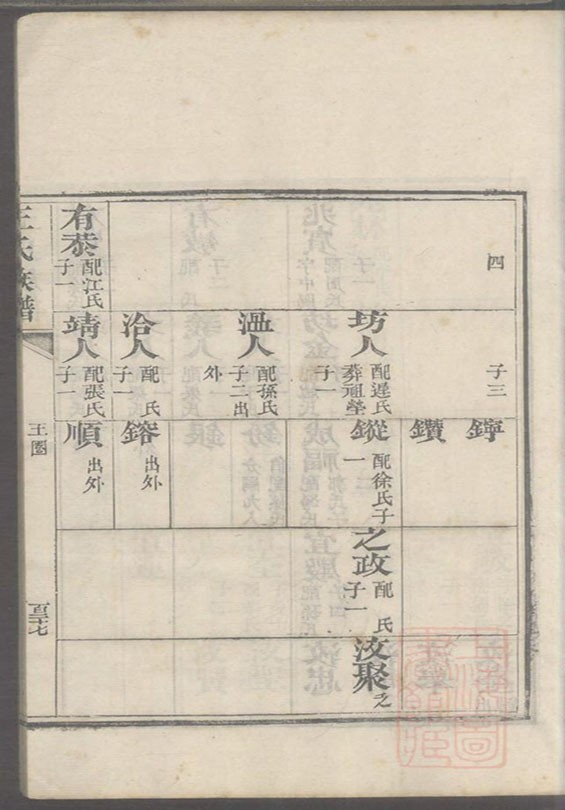 四
子三
鑏
鑽
坊人 配遲氏 葬祖塋 子一
鏦 配徐氏 子一
之政 配 氏 子一
汝聚
溫人 配孫氏 子二出外
治人 配 氏 子一
鎔 出外
有泰 配江氏 子一
靖人 配張氏 子一
順 出外
王氏族譜
王圈